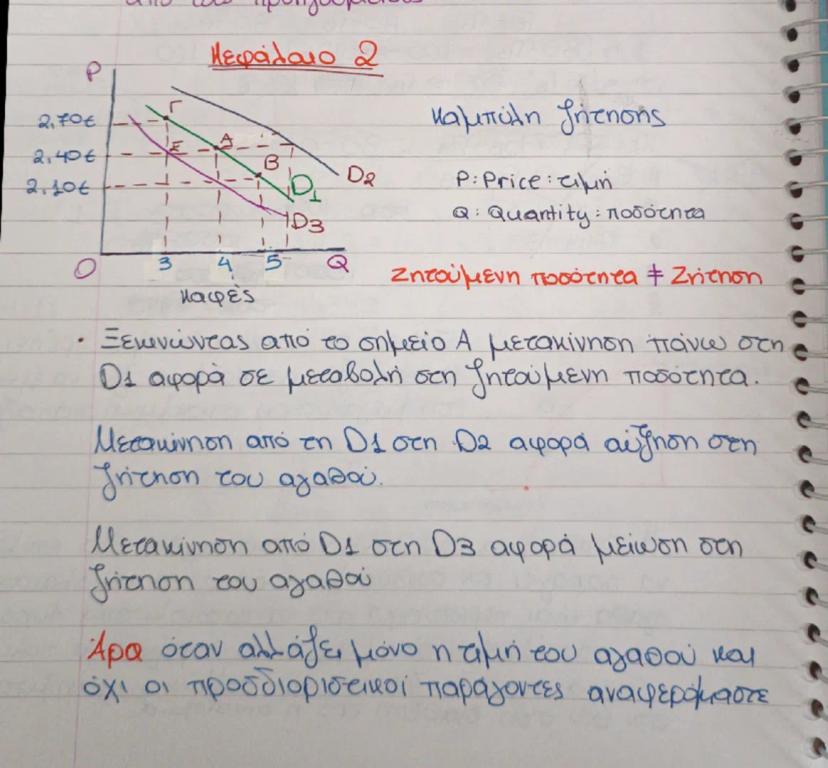 από το προηγούμενο
Κεφάλαιο 2
P
Γ
2,70€
A
E
2,40€
B
D2
2,10€
D1
D3
O
3
4
5
Q
καφές
Καμπύλη ζήτησης
P: Price: τιμή
Q: Quantity: ποσότητα
Ζητούμενη ποσότητα ≠ Ζήτηση
• Ξεκινώντας από το σημείο Α μετακίνηση πάνω στη
D1 αφορά σε μεταβολή στη ζητούμενη ποσότητα.
Μετακίνηση από τη D1 στη D2 αφορά αύξηση στη
ζήτηση του αγαθού.
Μετακίνηση από D1 στη D3 αφορά μείωση στη
ζήτηση του αγαθού
Άρα όταν αλλάξει μόνο η τιμή του αγαθού και
όχι οι προσδιοριστικοί παράγοντες αναφερόμαστε